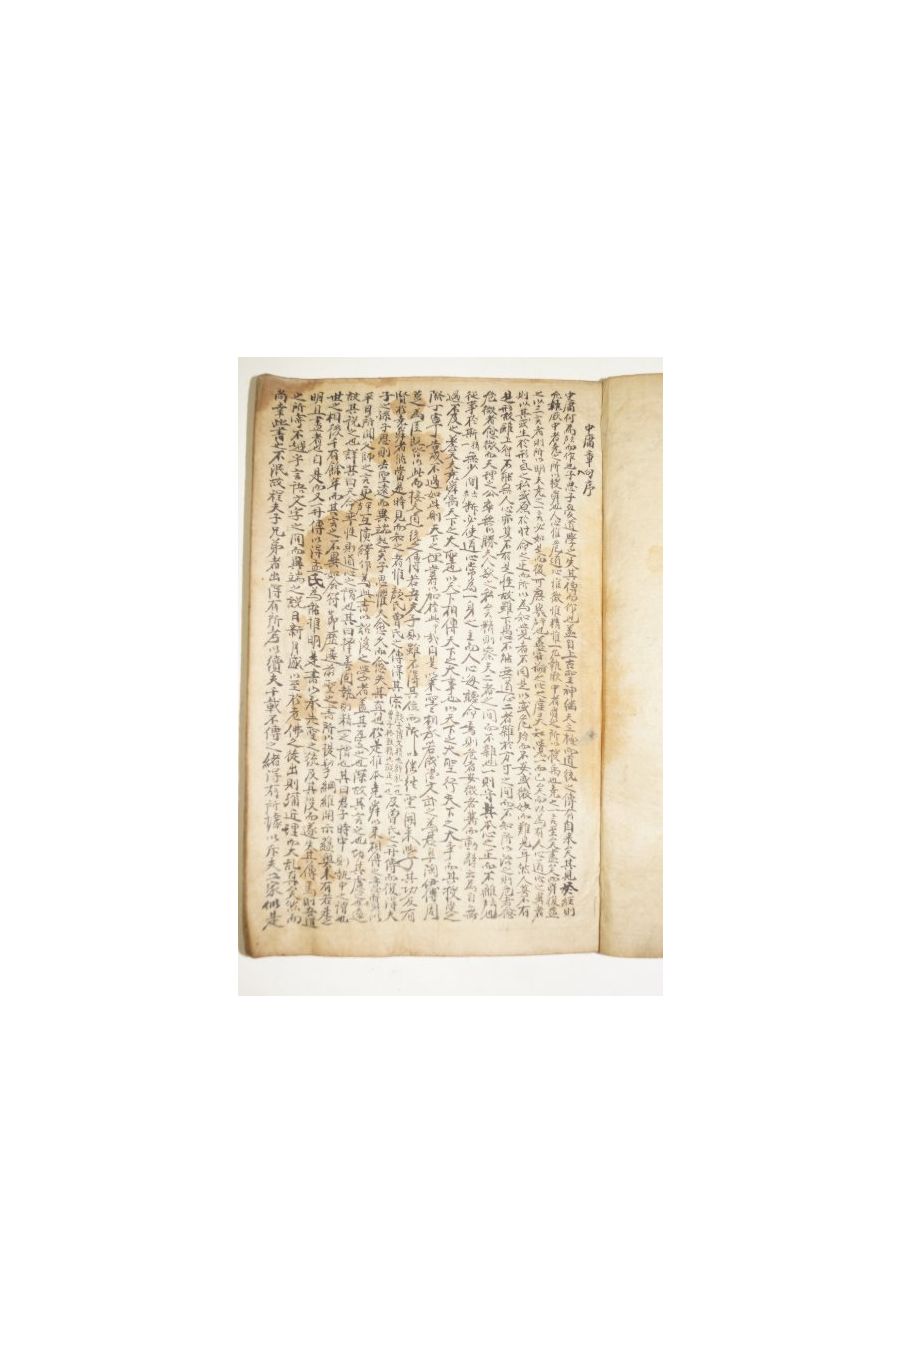 中庸章句序
中庸何為而作也子思子憂道學之失其傳而作也蓋自上古聖神繼天立極而道統之傳有自來矣其見於經則
允執厥中者堯之所以授舜也人心惟危道心惟微惟精惟一允執厥中者舜之所以授禹也堯之一言至矣盡矣而舜復益
之以三言者則所以明夫堯之一言必如是而後可庶幾也蓋嘗論之心之虛靈知覺一而已矣而以為有人心道心之異者
則以其或生於形氣之私或原於性命之正而所以為知覺者不同是以或危殆而不安或微妙而難見耳然人莫不有
是形故雖上智不能無人心亦莫不有是性故雖下愚不能無道心二者雜於方寸之間而不知所以治之則危者愈
危微者愈微而天理之公卒無以勝夫人欲之私矣精則察夫二者之間而不雜也一則守其本心之正而不離也
從事於斯無少間斷必使道心常為一身之主而人心每聽命焉則危者安微者著而動靜云為自無
過不及之差矣夫堯舜禹天下之大聖也以天下相傳天下之大事也以天下之大聖行天下之大事而其授受之
際丁寧告戒不過如此則天下之理豈有以加於此哉自是以來聖聖相承若成湯文武之為君皋陶伊傅周
召之為臣既皆以此而接夫道統之傳若吾夫子則雖不得其位而所以繼往聖開來學其功反有
賢於堯舜者然當是時見而知之者惟顏氏曾氏之傳得其宗及曾氏之再傳而復得夫
子之孫子思則去聖遠而異端起矣子思懼夫愈久而愈失其真也於是推本堯舜以來相傳之意質以
平日所聞父師之言更互演繹作為此書以詔後之學者蓋其憂之也深故其言之也切其慮之也遠
故其說之也詳其曰天命率性則道心之謂也其曰擇善固執則精一之謂也其曰君子時中則執中之謂也
世之相後千有餘年而其言之不異如合符節歷選前聖之書所以提挈綱維開示蘊奧未有若是之
明且盡者也自是而又再傳以得孟氏為能推明是書以承先聖之統及其沒而遂失其傳焉則吾道
之所寄不越乎言語文字之間而異端之說日新月盛以至於老佛之徒出則彌近理而大亂真矣然而
尚幸此書之不泯故程夫子兄弟者出得有所考以續夫千載不傳之緒得有所據以斥夫二家似是